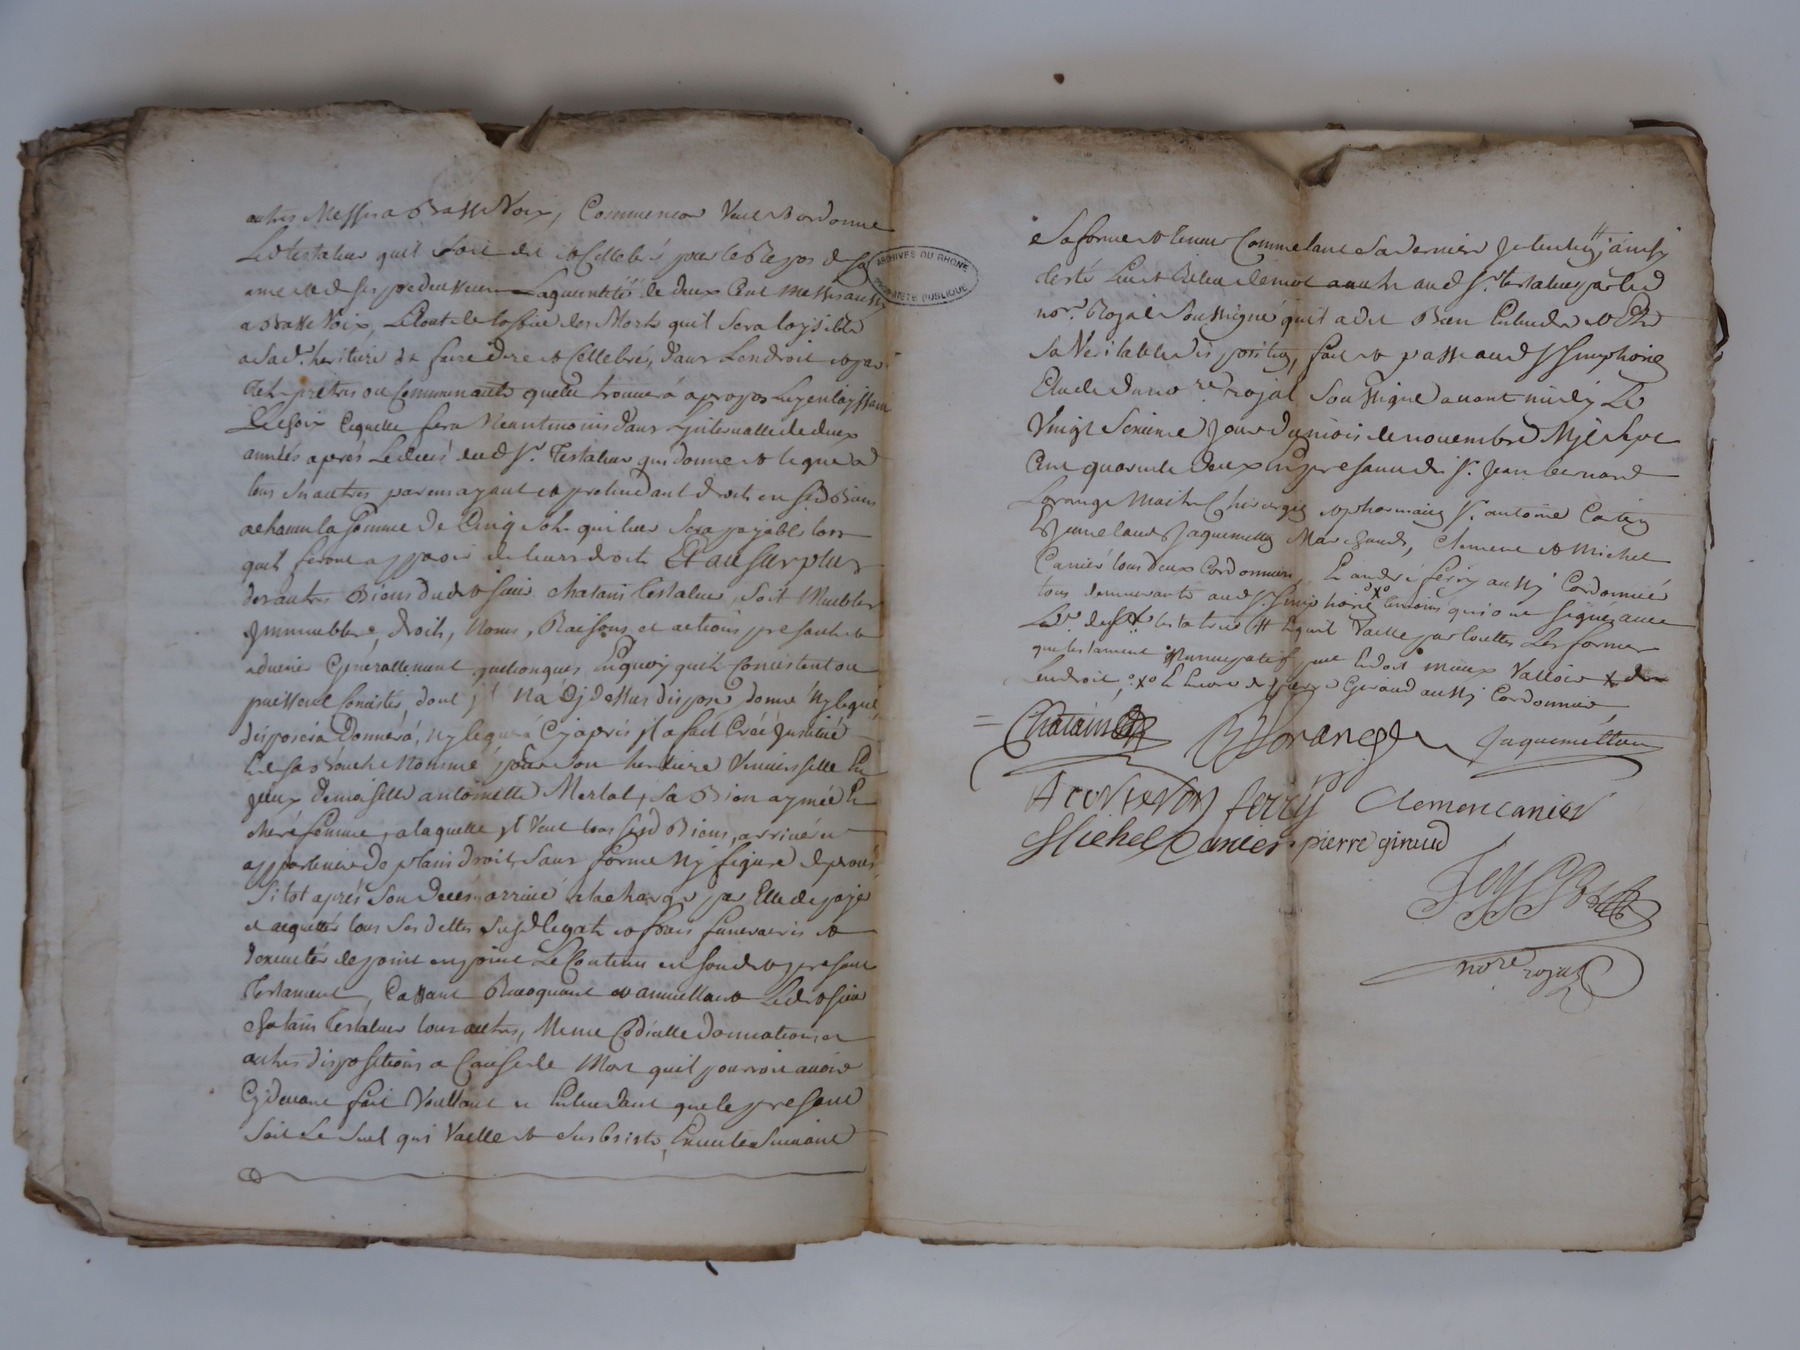 autres Messes a Basse Voix, Comme encor Veut & ordonne
Led testateur quil soit dit et Cellebré pour le Repos de sa
ame et de ses predecesseurs La quantité de deux Cent Messes aussy
a Basse Voix, Le tout de loffice des Morts quil sera loysible
a sad. heritiere de faire dire et Cellebrer, dans Lendroit et par
tels pretres ou Communautés quelle trouvera a propos luy en laissant
Le choix Ce quelle fera Neantmoins dans Lintervalle de deux
années aprés Le decés dud Sr. Testateur qui donne et legue a
tous ses autres parens ayant et pretendant droits en sesd Biens
a chacun la somme de Cinq sols qui leur sera payable lors
quil feront apparoir de leurs droits Et au surplus
des autres Biens dud sieur chatain testateur, soit Meubles
Immeubles, droits, Noms, Raisons et actions presents et
advenir Generallement quelconques En quoy quils Consistent ou
puissent Consister, dont jl Na Cy dessus disposé donné Ny legué,
disposera Donnera, ny leguera Cy aprés jl a fait Créé Institué
Et de sa Bouche Nommé pour son heritiere Universelle
demoiselle antoinette Merlat, sa Bien aymée &
chere femme, a laquelle jl Veut tous sesd Biens, arriver et
appartenir de plain droit, sans forme Ny figure de procés,
Sitot aprés son decés arrivé a la charge par Elle de payer
et acquitter tous ses dettes susd legats et frais funeraires et
dexecuter de point en point Le Contenu en sond present
Testament, Cassant Revoquant et annullant Led sieur
chatain Testateur tous autres, Meme Codicille donnations et
autres dispositions a Cause de Mort quil pourroit avoir
Cy devant fait Voullant et Entendant que le present
Soit Le Seul qui Vaille et subsiste, Execute Suivant
ARCHIVES DU RHONE
PROPRIÉTÉ PUBLIQUE
sa forme et teneur Comme etant sa derniere Intention #, ainsy
no.re Royal Soussigné quil a dit Bien Entendre et Etre
sa Veritable disposition, fait et passé aud St Simphorien
Etude du no.re royal Soussigné avant midy Le
Vingt Sixieme Jour du mois de novembre Mil Sept
Cent quarente deux En presence de Sr. Jean bernard
Lorange Maitre Chirurgien et pharmacien Sr. antoine
Jaquemetton Marchands, Clement et Michel
Canier tous deux Cordonniers, Et andré ferry aussy Cordonnier
tous demeurants aud St. Simphorien temoins qui ont signé avec
Led. testateur # Et quil Vaille par touttes Les formes
que testament Nuncupatif peut Et doit mieux Valloir
En droit, °x° Et Encore de pierre Giraud aussy Cordonnier
= Chatain
Lorange
Jaquemetton
ferry
Clemen canier
Michel Canier
pierre giraud
nore royal